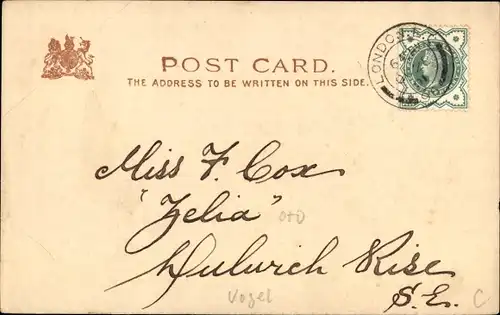 POST CARD.
THE ADDRESS TO BE WRITTEN ON THIS SIDE.
LONDON. E.
Miss F. Cox
"Zelia"
Dulwich Rise
S.E.
Vogel
C